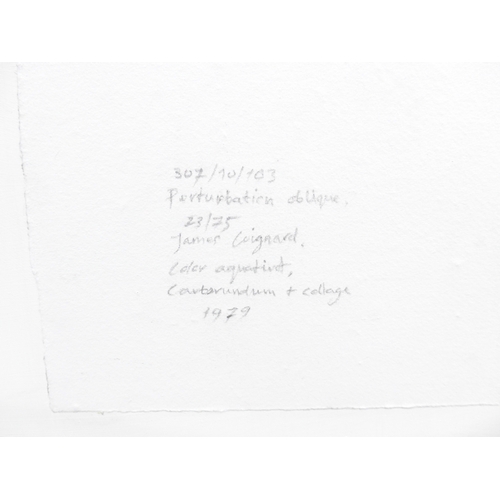 307/10/103
Perturbation oblique.
23/75
James Coignard.
Color aquatint,
Carborundum + collage
1979